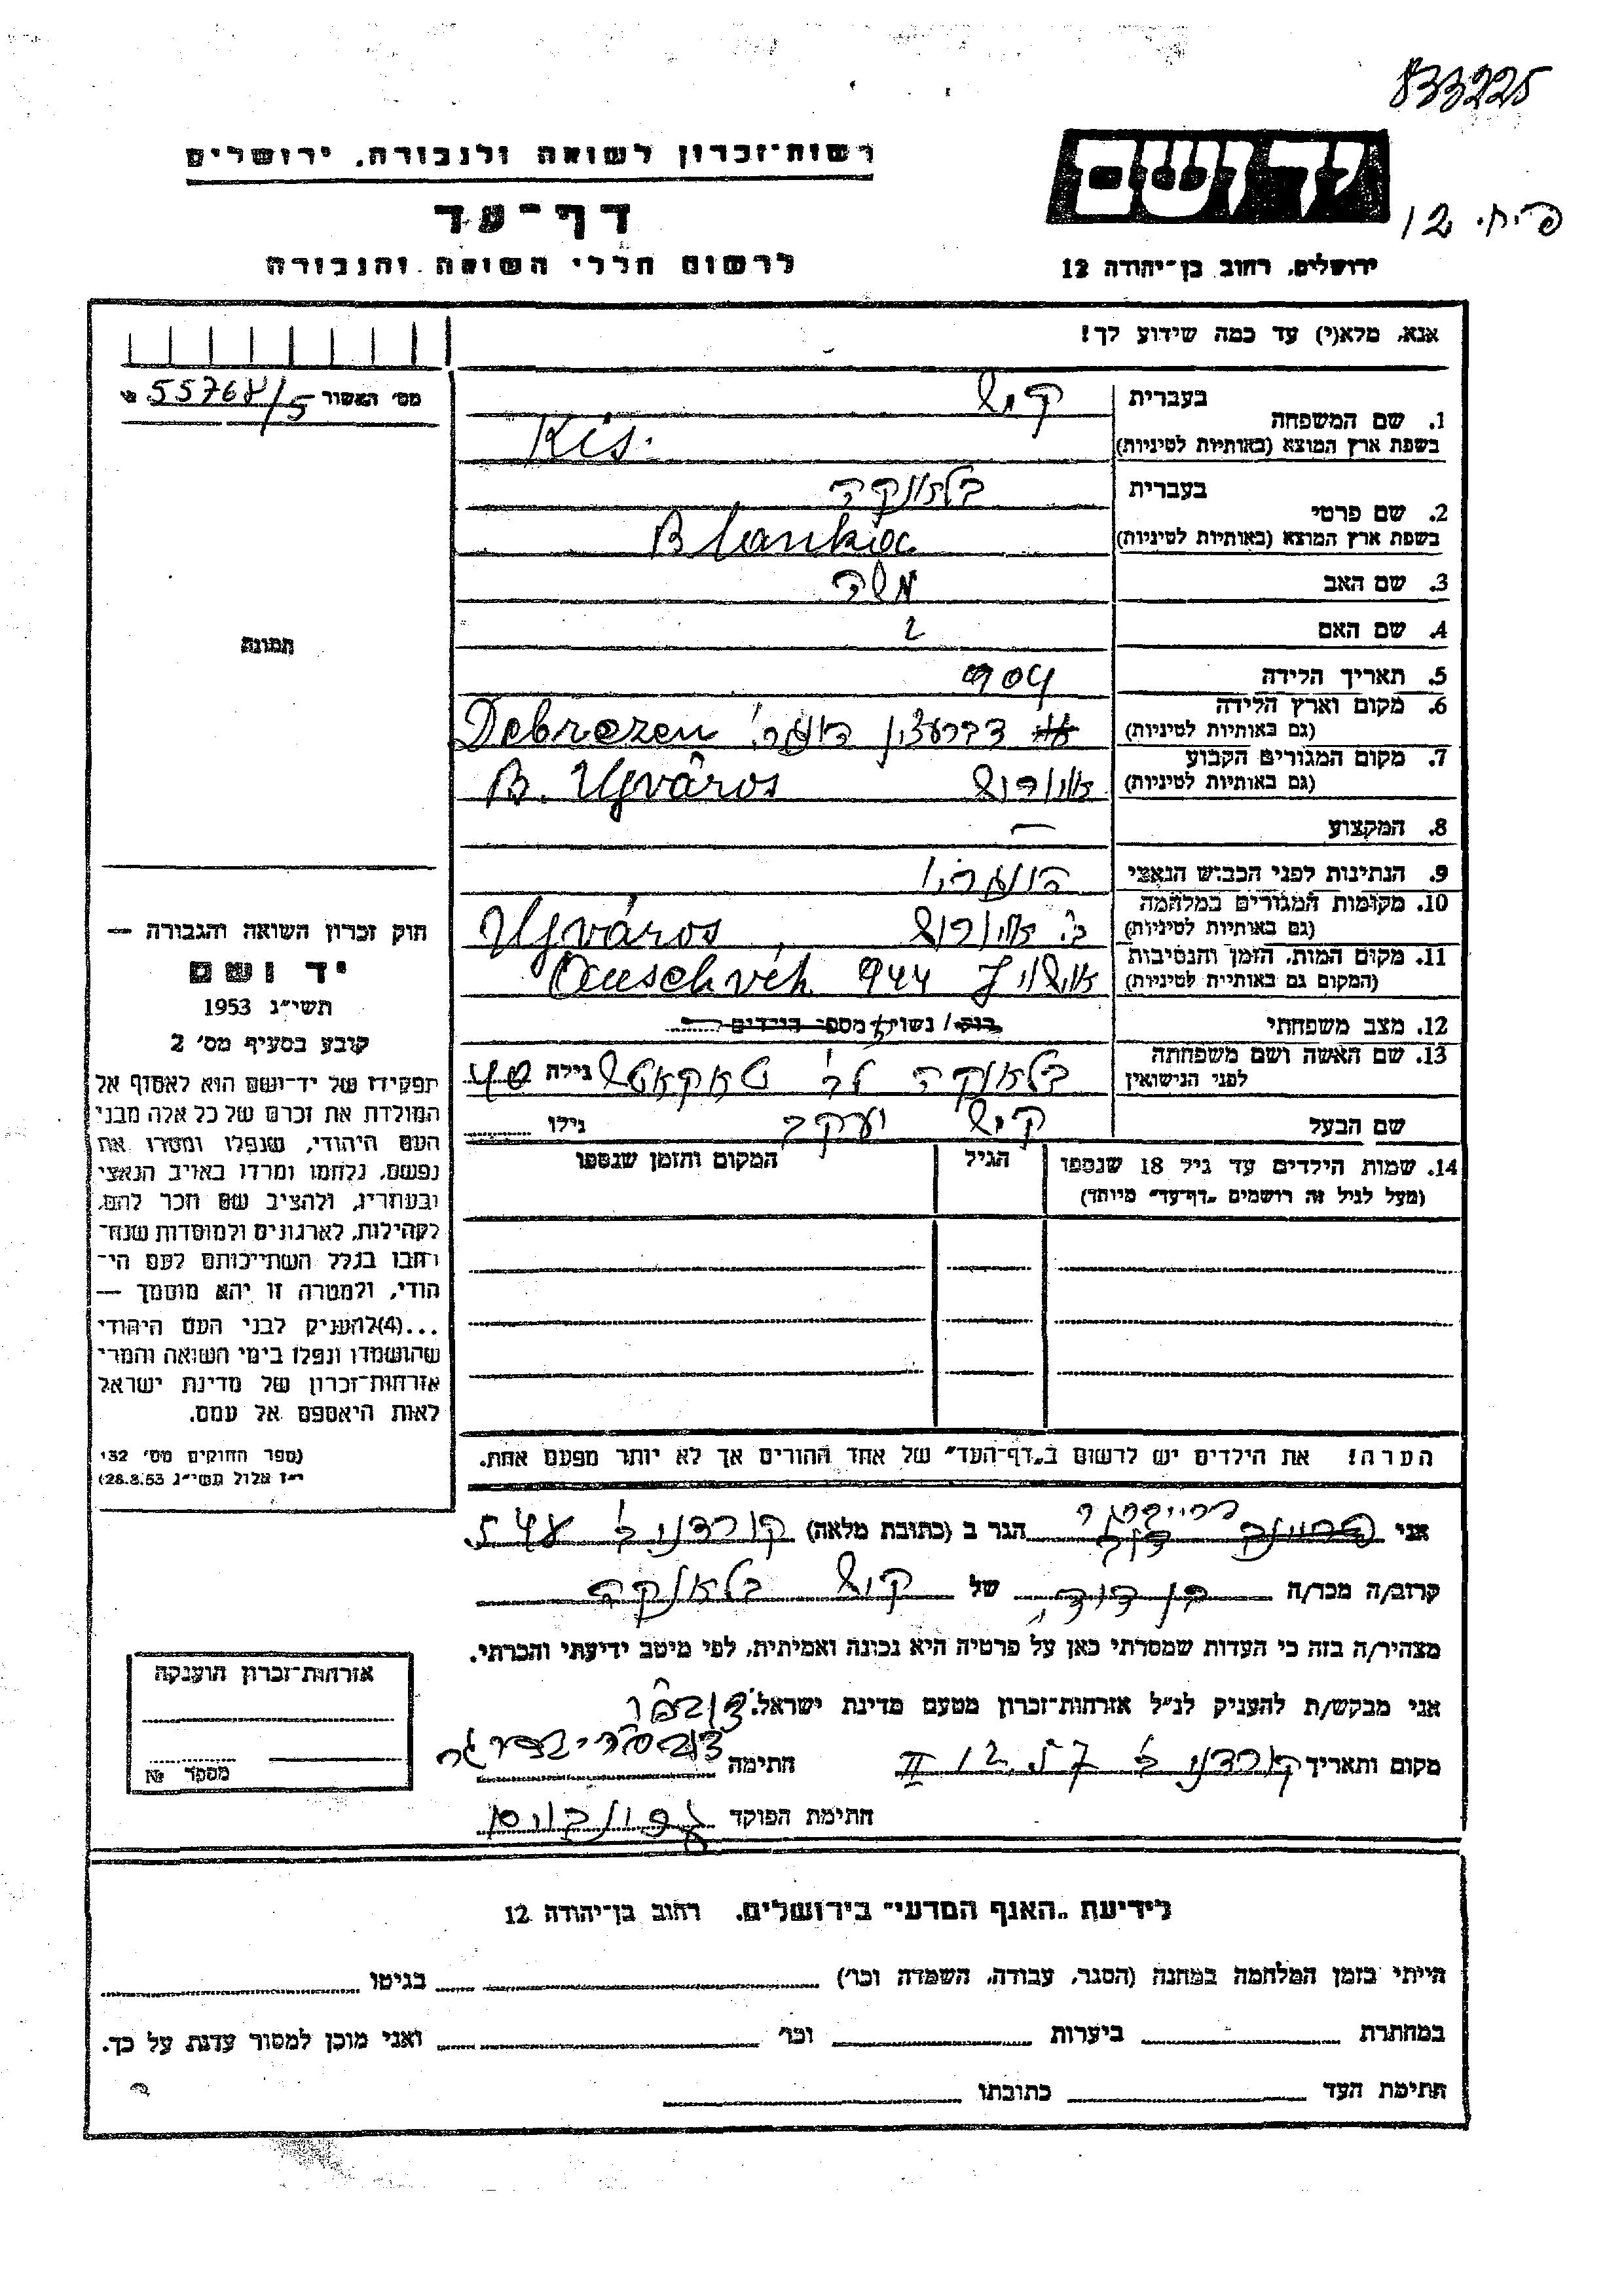 833225
רשות־זכרון לשואה ולגבורה, ירושלים
יד ושם
דף־עד
12
לרשום חללי השואה והגבורה
ירושלים, רחוב בן־יהודה 12
אנא, מלא(י) עד כמה שידוע לך!
מס׳ האשור 55768/5
1. שם המשפחה
בעברית קיש
בשפת ארץ המוצא (באותיות לטיניות) Kis
2. שם פרטי
בעברית בלאנקה
בשפת ארץ המוצא (באותיות לטיניות) Blanka
3. שם האב משה
4. שם האם ?
תמונה
5. תאריך הלידה 904
6. מקום וארץ הלידה
(גם באותיות לטיניות) דברצן הונגרי Debrezen
7. מקום המגורים הקבוע
(גם באותיות לטיניות) אויוארוש B. Ujváros
8. המקצוע —
9. הנתינות לפני הכבוש הנאצי הונגרי
10. מקומות המגורים במלחמה
(גם באותיות לטיניות) ב. אויוארוש Ujváros
11. מקום המות, הזמן והנסיבות
(המקום גם באותיות לטיניות) 944
12. מצב משפחתי רוק/נשוי/מספר הילדים
13. שם האשה ושם משפחתה
לפני הנישואין בלאנקה לב׳ טאקאטש גילה 40
שם הבעל קיש יעקב גילו
14. שמות הילדים עד גיל 18 שנספו
(מעל לגיל זה רושמים „דף־עד״ מיוחד)
הגיל
המקום והזמן שנספו
חוק זכרון השואה והגבורה —
יד ושם
תשי״ג 1953
קובע בסעיף מס׳ 2
תפקידו של יד־ושם הוא לאסוף אל
המולדת את זכרם של כל אלה מבני
העם היהודי, שנפלו ומסרו את
נפשם, נלחמו ומרדו באויב הנאצי
ובעוזריו, ולהציב שם וזכר להם,
לקהילות, לארגונים ולמוסדות שנח־
רבו בגלל השתייכותם לעם הי־
הודי, ולמטרה זו יהא מוסמך —
...(4)להעניק לבני העם היהודי
שהושמדו ונפלו בימי השואה והמרי
אזרחות־זכרון של מדינת ישראל
לאות היאספם אל עמם.
(ספר החוקים מס׳ 132
י״ז אלול תשי״ג 28.8.53)
הערה! את הילדים יש לרשום ב„דף־העד״ של אחד ההורים אך לא יותר מפעם אחת.
אני הגר ב (כתובת מלאה) קורדני ב
קרוב/ה מכר/ה בן דודה של קיש בלאנקה
מצהיר/ה בזה כי העדות שמסרתי כאן על פרטיה היא נכונה ואמיתית, לפי מיטב ידיעתי והכרתי.
אני מבקש/ת להעניק לנ״ל אזרחות־זכרון מטעם מדינת ישראל.
מקום ותאריך קורדני ב 12.II 57 חתימה
חתימת הפוקד
אזרחות־זכרון הוענקה
מספר №
לידיעת „האגף המדעי״ בירושלים, רחוב בן־יהודה 12
הייתי בזמן המלחמה במחנה (הסגר, עבודה, השמדה וכו׳) בגיטו
במחתרת ביערות וכו׳ ואני מוכן למסור עדות על כך.
חתימת העד כתובתו